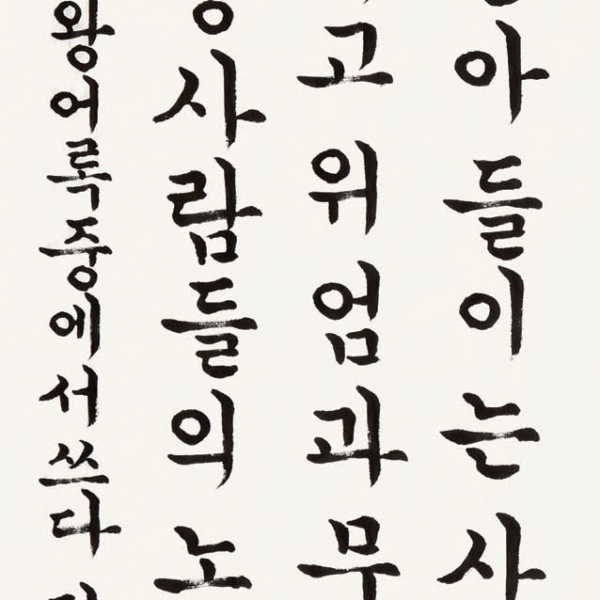 아들이는사
고위엄과무
사람들의노
왕어록중에서쓰다